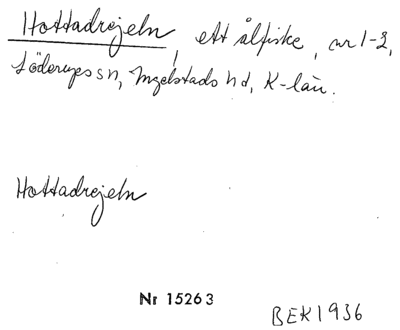 Hottadrejeln, ett ålfiske, nr 1-2,
Löderups sn, Ingelstads hd, K-län.
Hottadrejeln
Nr 15263
BEK 1936